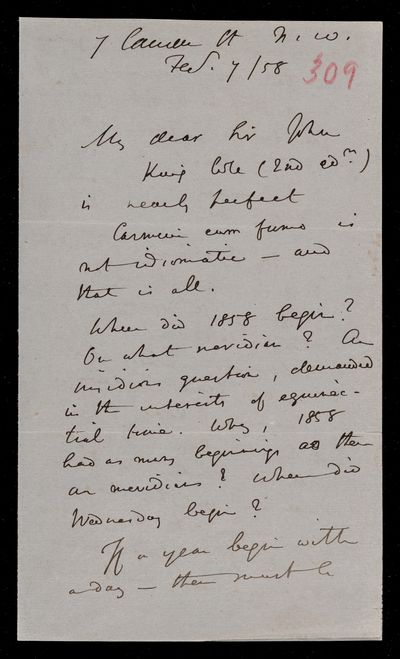 7 Camden St N.W.
Feb. 7/58
309
My dear Sir John
King Cole (2nd edn)
is nearly perfect
Carmen cum fumo is
not idiomatic – and
that is all.
When did 1858 begin?
On what meridian? An
insidious question, demanded
in the interests of equinoc-
tial time. Why, 1858
had as many beginnings as there
are meridians? When did
Wednesday begin?
If a year begin with
a day – there must be